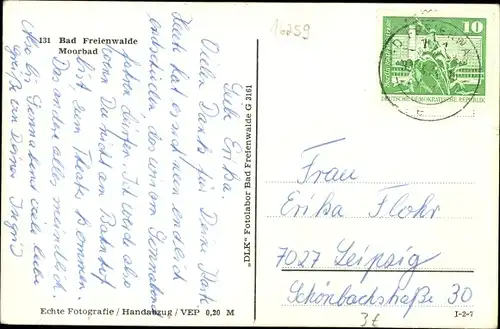 131 Bad Freienwalde
Moorbad
16259
Liebe Erika.
Vielen Dank für Deine Karte
Heute hat es sich nun endlich
entschieden, daß wir am Sonnabend
fahren dürfen. Ich werde also
wenn Du nicht am Bahnhof
bist zum Theater kommen.
Das andere alles mündlich.
Also bis Sonnabend viele liebe
Grüße von Deiner Ingrid
"DLK" Fotolabor Bad Freienwalde G 3161
10
DEUTSCHE DEMOKRATISCHE REPUBLIK
Frau
Erika Flohr
7027 Leipzig
Schönbachstraße 30
3€
Echte Fotografie / Handabzug / VEP 0,20 M
I-2-7